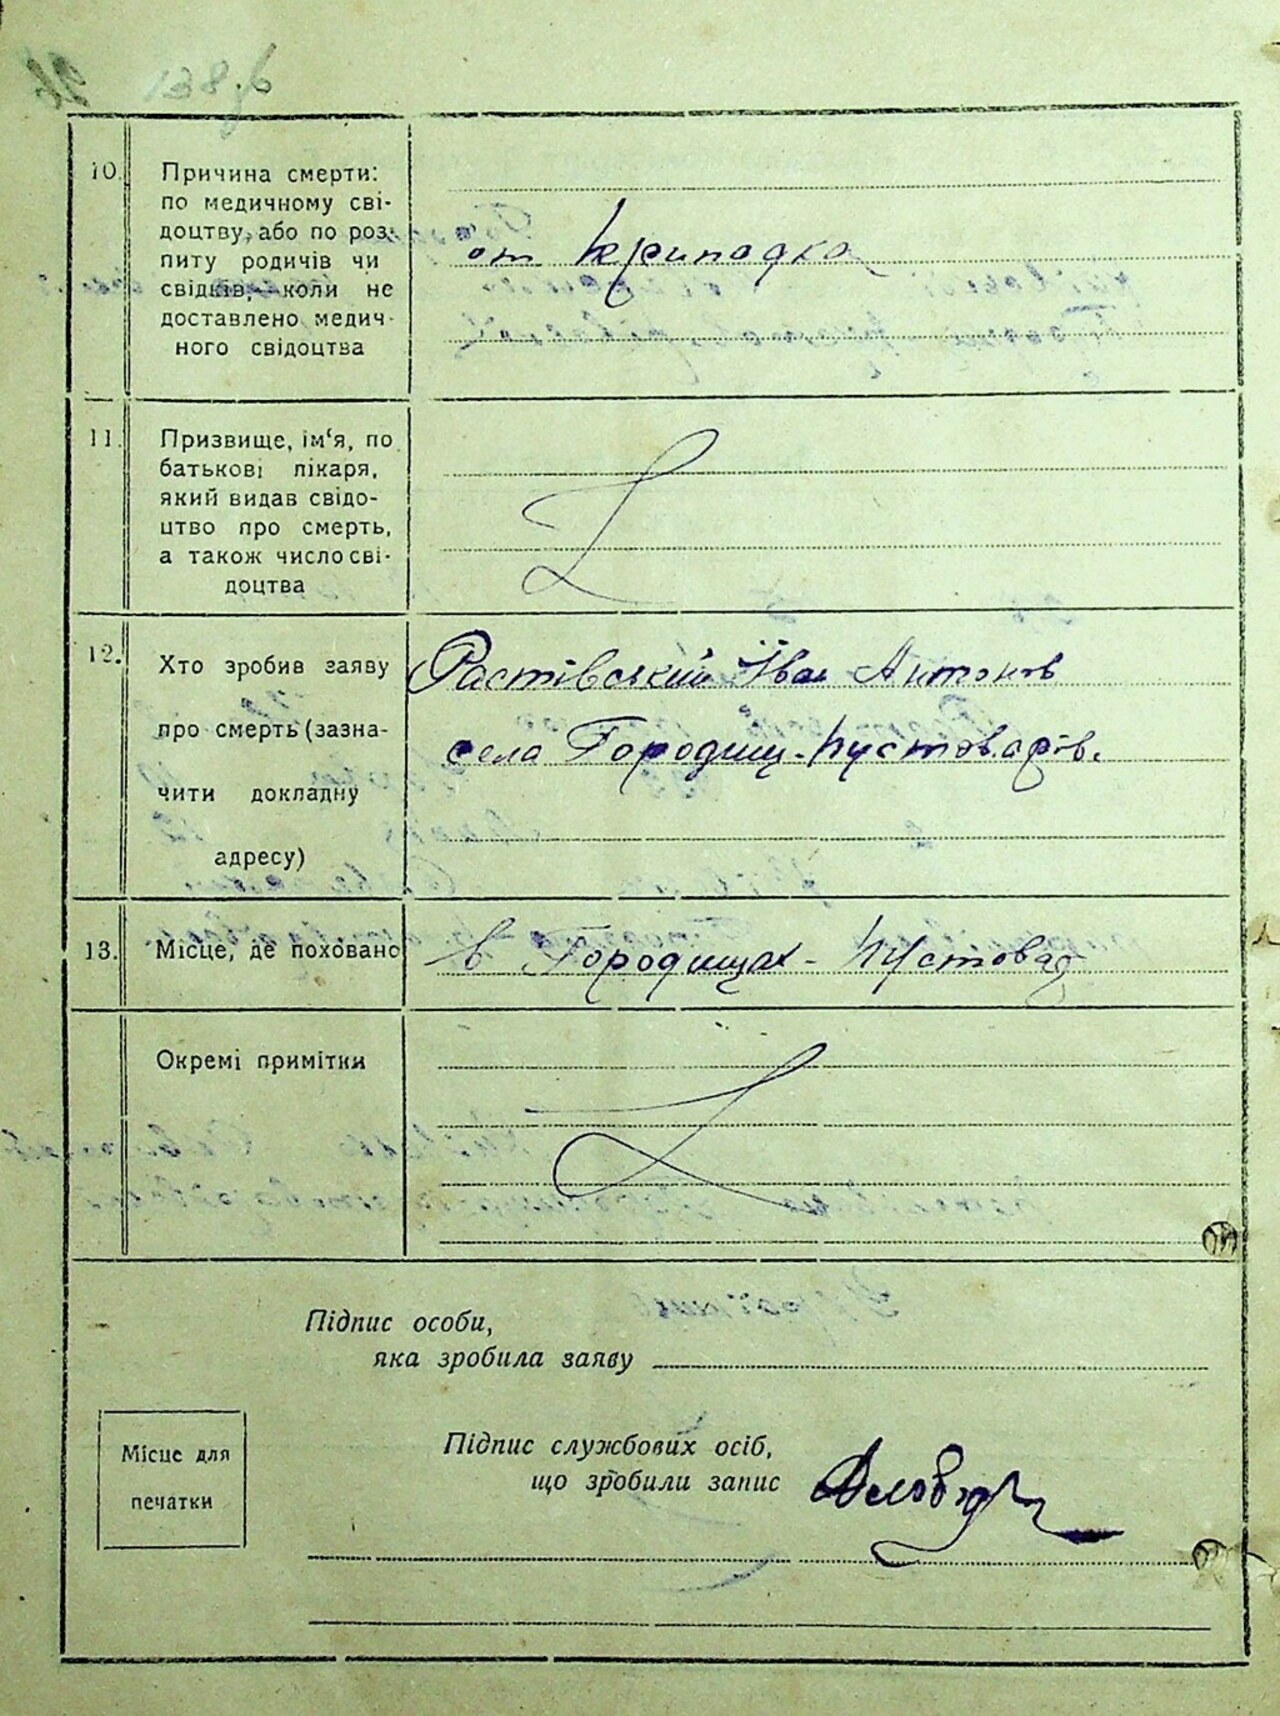 138зв
10. Причина смерти:
по медичному сві-
доцтву, або по роз-
питу родичів чи
свідків,—коли не
доставлено медич-
ного свідоцтва
от припадка
11. Призвище, ім‘я, по
батькові лікаря,
який видав свідо-
цтво про смерть,
а також число сві-
доцтва
12. Хто зробив заяву
про смерть (зазна-
чити докладну
адресу)
Растівський Іван Антонов
села Городищ-Пустоварів.
13. Місце, де поховано
в Городищах-Пустовар
Окремі примітки
Підпис особи,
яка зробила заяву
Місце для
печатки
Підпис службових осіб,
що зробили запис